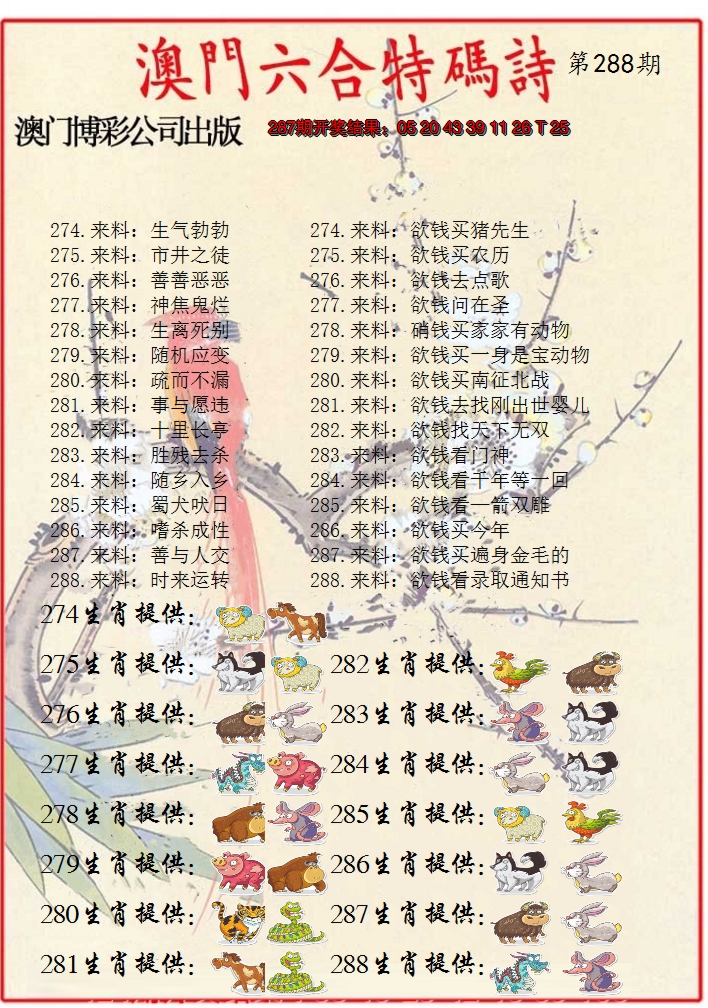 澳門六合特碼詩 第288期
澳门博彩公司出版 287期开奖结果：05 20 43 39 11 26 T 25
274.来料：生气勃勃 274.来料：欲钱买猪先生
275.来料：市井之徒 275.来料：欲钱买农历
276.来料：善善恶恶 276.来料：欲钱去点歌
277.来料：神焦鬼烂 277.来料：欲钱问在圣
278.来料：生离死别 278.来料：硝钱买家家有动物
279.来料：随机应变 279.来料：欲钱买一身是宝动物
280.来料：疏而不漏 280.来料：欲钱买南征北战
281.来料：事与愿违 281.来料：欲钱去找刚出世婴儿
282.来料：十里长亭 282.来料：欲钱找天下无双
283.来料：胜残去杀 283.来料：欲钱看门神
284.来料：随乡入乡 284.来料：欲钱看千年等一回
285.来料：蜀犬吠日 285.来料：欲钱看一箭双雕
286.来料：嗜杀成性 286.来料：欲钱买今年
287.来料：善与人交 287.来料：欲钱买遍身金毛的
288.来料：时来运转 288.来料：欲钱看录取通知书
274生肖提供：
275生肖提供： 282生肖提供：
276生肖提供： 283生肖提供：
277生肖提供： 284生肖提供：
278生肖提供： 285生肖提供：
279生肖提供： 286生肖提供：
280生肖提供： 287生肖提供：
281生肖提供： 288生肖提供：